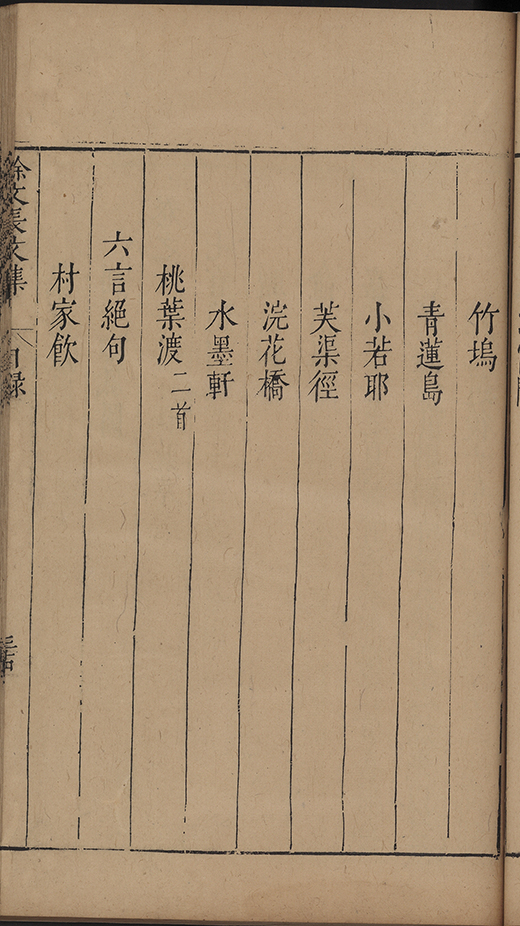 竹塢
青蓮島
小若耶
芙渠徑
浣花橋
水墨軒
桃葉渡二首
六言絕句
村家飲
徐文長文集 目録